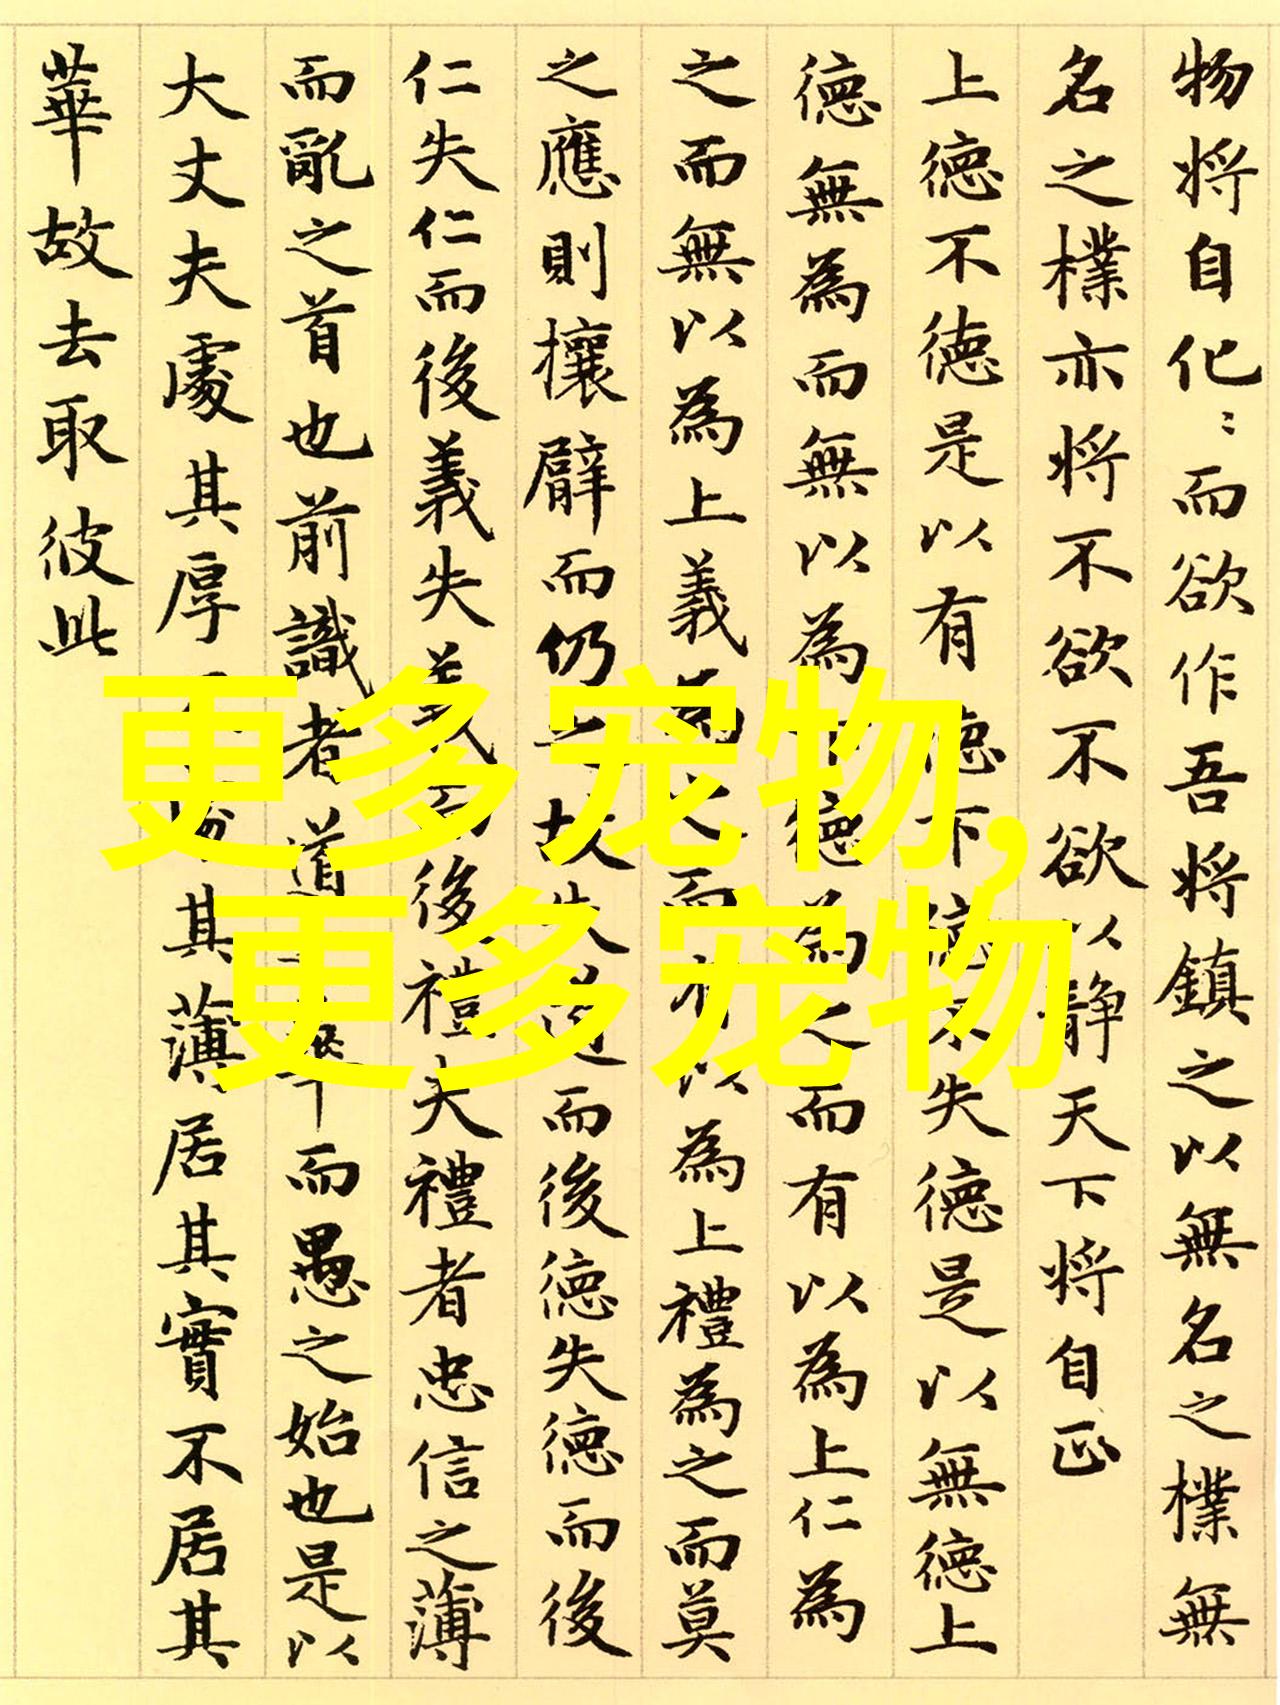 物将自化〻而欲作吾将鎮之以無名之樸無
名之樸亦将不欲不欲以静天下将自正
上德不德是以有德下德不失德是以無德上
德無為而無以為下德為之而有以為上仁為
之而無以為上義為之而有以為上禮為之而莫
之應則攘臂而仍之故失道而後德失德而後
仁失仁而後義失義而後禮夫禮者忠信之薄
而亂之首也前識者道華而愚之始也是以
大丈夫處其厚不其薄居其實不居其
華故去取彼此
更多宠物,
更多宠物